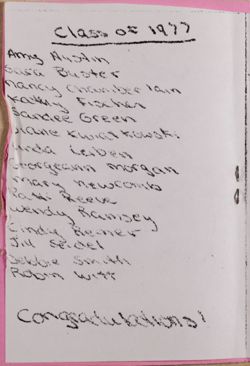 Class of 1977
Amy Austin
Sara Buster
Nancy Chamberlain
Kathy Fischer
Sandee Green
Diane Kwiatkowski
Linda Leiben
Georgeann Morgan
Mary Newcomb
Patti Reeve
Wendy Ramsey
Cindy Reiner
Jill Seidel
Debbie Smith
Robin Witt
Congratulations!